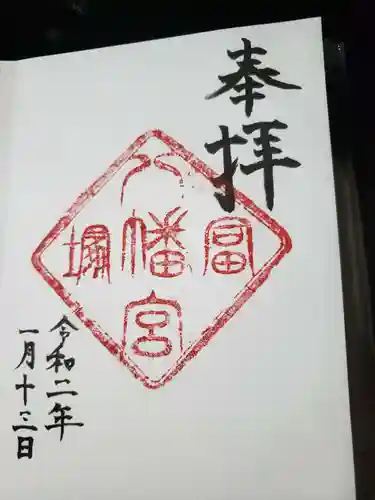 奉拝
冨塚
八幡宮
令和二年
一月十三日